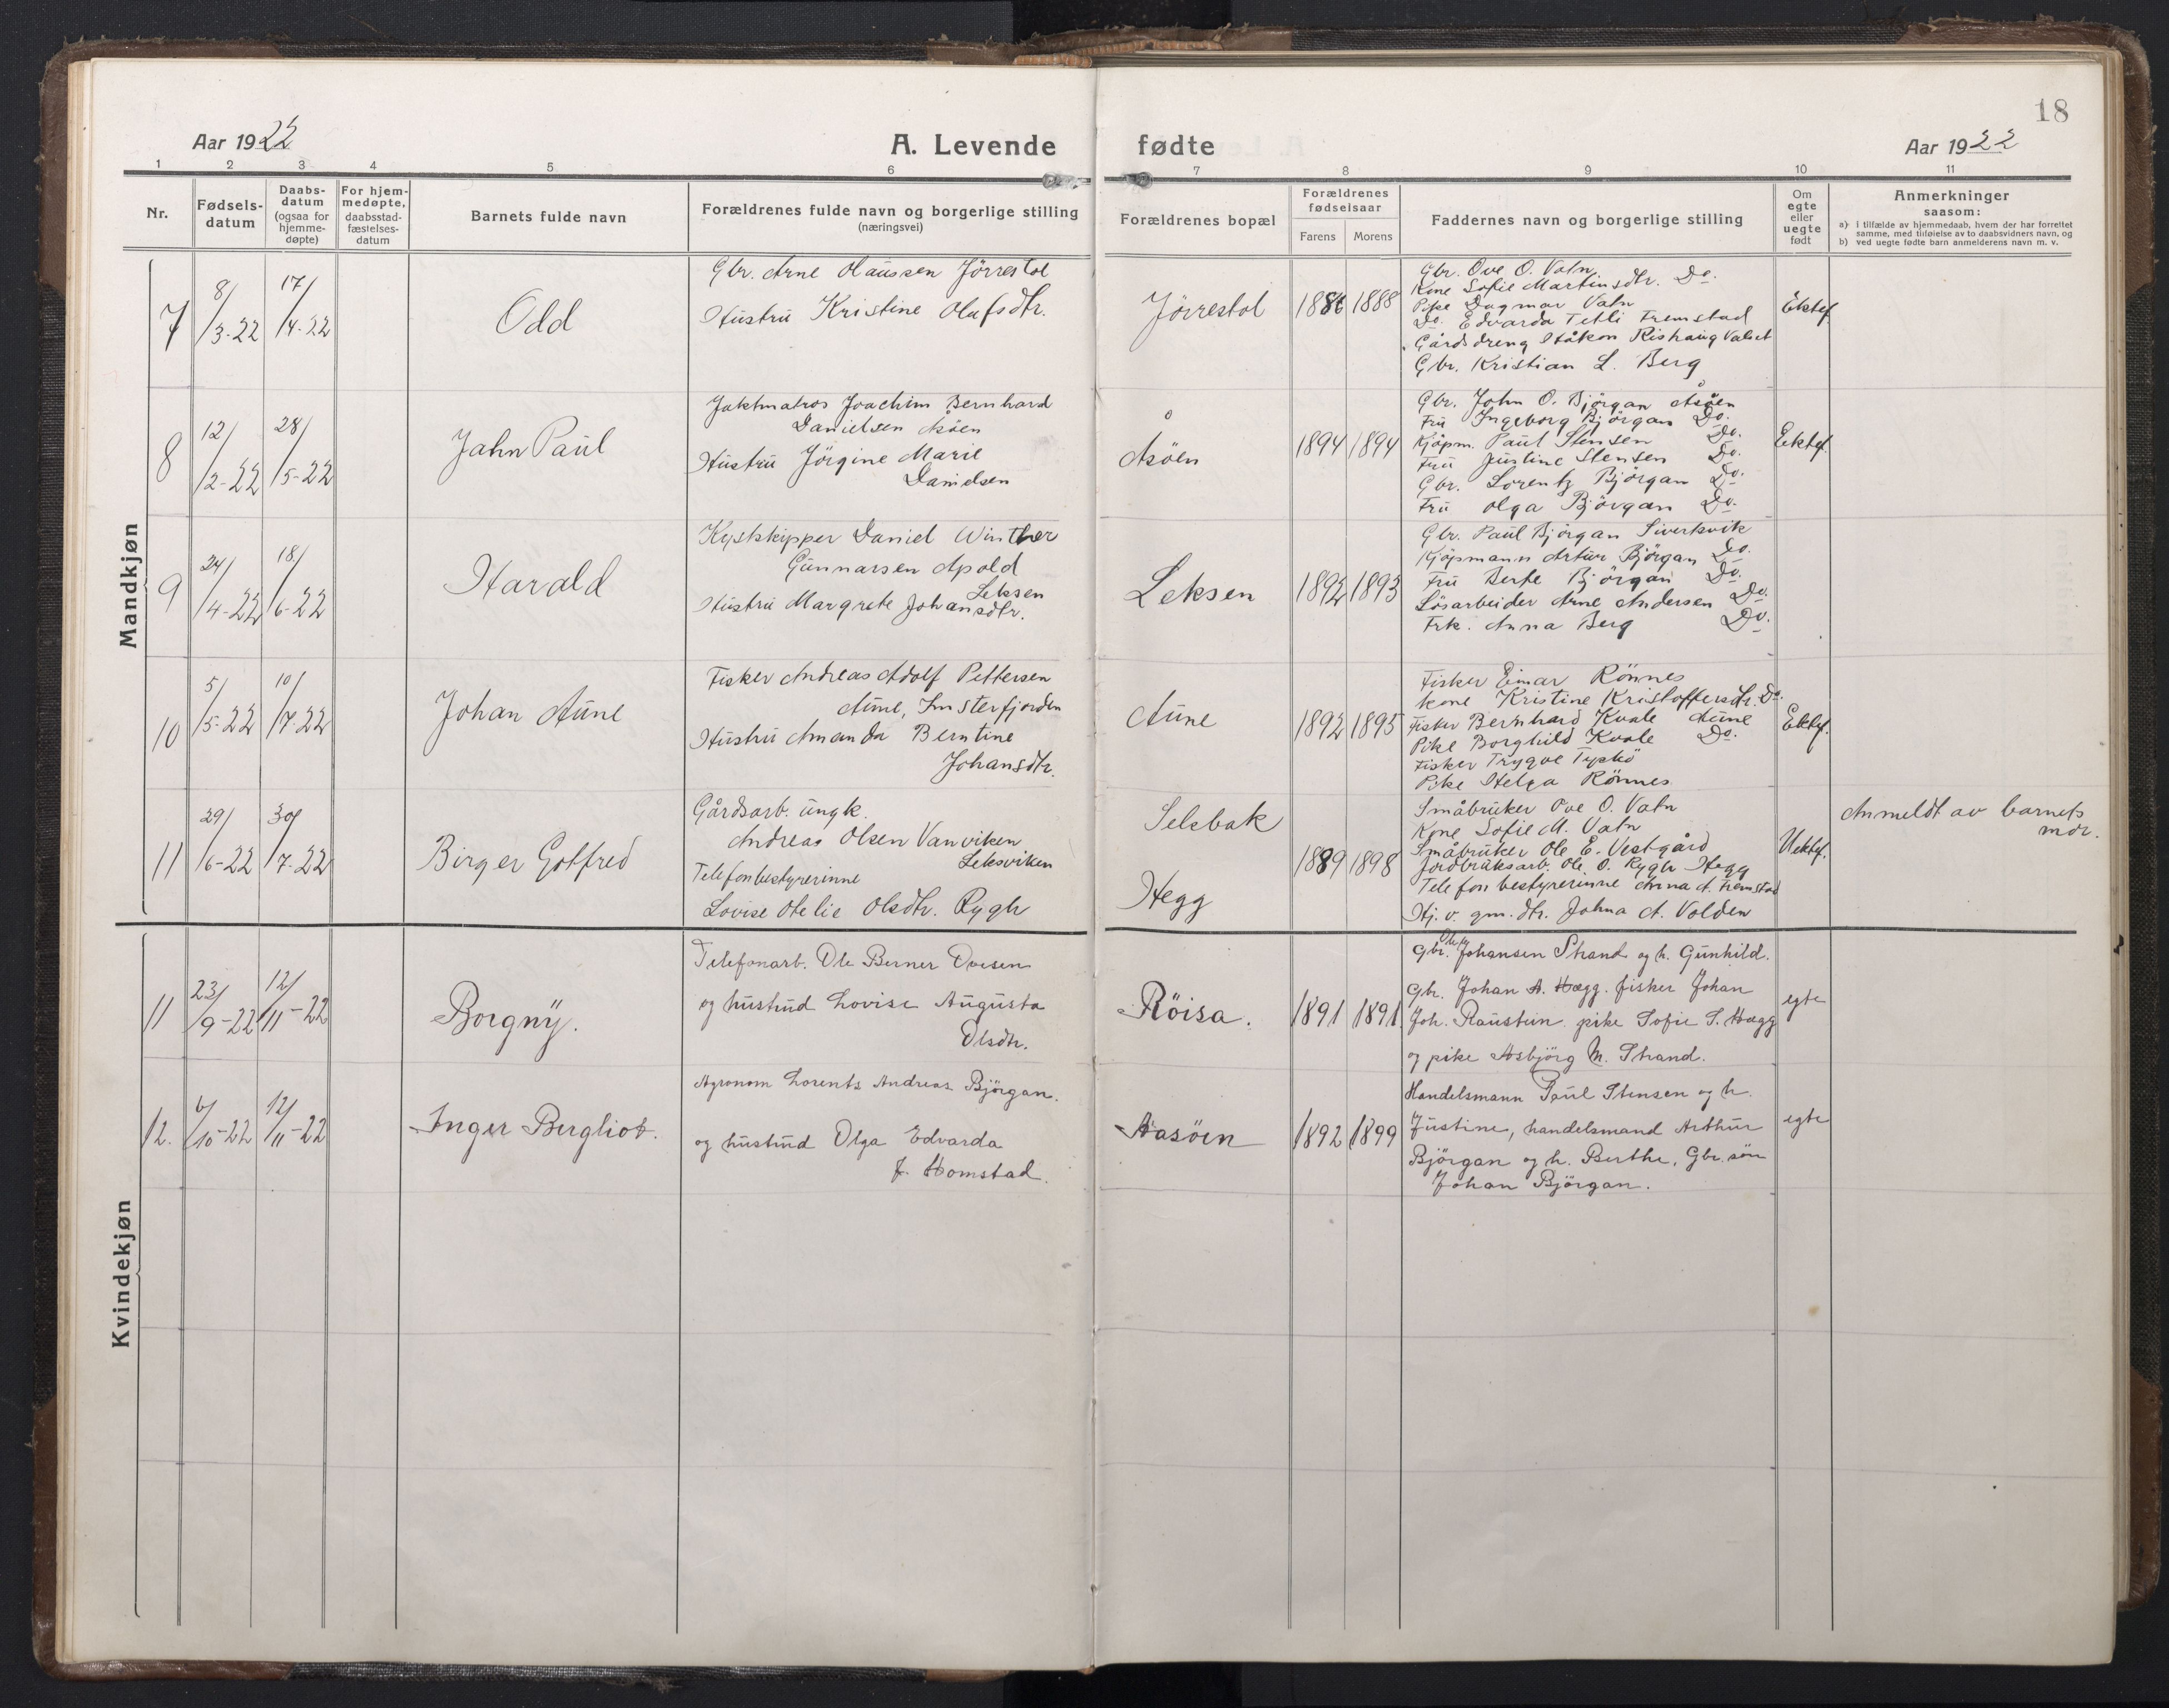 18
Aar 1922
A. Levende
fødte
Aar 1922
1 2 3 4 5 6 7 8 9 10 11
Nr.
Fødsels-
datum
Daabs-
datum
(ogsaa for
hjemme-
døpte)
For hjem-
medøpte,
daabsstad-
fæstelses-
datum
Barnets fulde navn
Forældrenes fulde navn og borgerlige stilling
(næringsvei)
Forældrenes bopæl
Forældrenes
fødselsaar
Farens Morens
Faddernes navn og borgerlige stilling
Om
egte
eller
uegte
født
Anmerkninger
saasom:
a) i tilfælde av hjemmedaab, hvem der har forrettet
samme, med tilføielse av to daabsvidners navn, og
b) ved uegte fødte barn anmelderens navn m. v.
Mandkjøn
7
8/3-22
17/4-22
Odd
Gbr. Arne Olaussen Jörrestol
Hustru Kristine Olufsdtr.
Jörrestol
1886 1888
Gbr. Ove O. Vatn.
Kone Sofie Martinsdtr. Do.
Pike Dagmar Vatn
Do. Edvarda Tetli Fremstad
Gårdsdreng Håkon Rishaug Valset
Gbr. Kristian L. Berg
Ektef.
8
12/2-22
28/5-22
Jahn Paul
Jaktmatros Joachim Bernhard
Danielsen Åsöen
Hustru Jörgine Marie
Danielsen
Åsöen
1894 1894
Gbr. John O. Björgan Åsöen
Fru Ingeborg Björgan Do.
Kjöpm. Paul Stensen Do.
Fru Justine Stensen Do.
Gbr. Lorentz Björgan Do.
Fru Olga Björgan Do.
Eektef.
9
24/4-22
18/6-22
Harald
Kystskipper Daniel Winther
Gunnarsen Apold
Leksen
Hustru Margrete Johansdtr.
Leksen
1892 1893
Gbr. Paul Björgan Sivertsvik
Kjöpmann Artur Björgan Do.
Fru Berte Björgan Do.
Lösarbeider Arne Andersen Do.
Frk. Anna Berg Do.
10
5/5-22
10/7-22
Johan Aune
Fisker Andreas Adolf Pettersen
Aune, Imsterfjorden
Hustru Amanda Berntine
Johansdtr.
Aune
1892 1895
Fisker Einar Rönnes
Kone Kristine Kristoffersdtr. Do.
Fisker Bernhard Kvale Aune
Pike Borghild Kvale Do.
Fisker Trygve Tyskö
Pike Helga Rönnes
Ektef.
11
29/6-22
30/7-22
Birger Gotfred
Gårdsarb. ungk.
Andreas Olsen Vanviken
Leksviken
Telefonbestyrerinne
Lovise Otelie Olsdtr. Rygh
Selsbak
Hegg
1889 1898
Småbruker Ove O. Vatn
Kone Sofie M. Vatn
Småbruker Ole E. Vestgård
Jordbruksarb. Ole O. Rygh Hegg
Telefonbestyrerinne Anna A. Fremstad
Hj. v. gm. dtr. Johna A. Volden
Uektef.
Anmeldt av barnets
mor.
Kvindekjøn
11
23/9-22
12/11-22
Borgny.
Telefonarb. Ole Berner Ovesen
og hustrud Lovise Augusta
Olsdtr.
Röisa.
1891 1891
Gbr. Johansen Strand og h. Gunhild.
Gbr. Johan A. Hægg. fisker Johan
Joh. Raustein. pike Sofie S. Hægg
og pike Asbjörg M. Strand.
egte
12.
6/10-22
12/11-22
Inger Bergliot.
Agronom Lorents Andreas Björgan.
og hustrud Olga Edvarda
f. Homstad.
Aasöen
1892 1899
Handelsmann Paul Stensen og h.
Justine, handelsmand Arthur
Björgan og h. Berthe, Gbr. sön
Johan Björgan.
egte